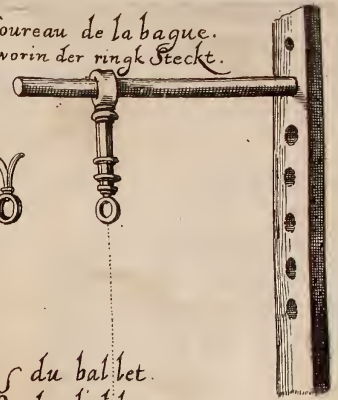 oureau de la bague.
worin der ringk Steckt.
du ballet.